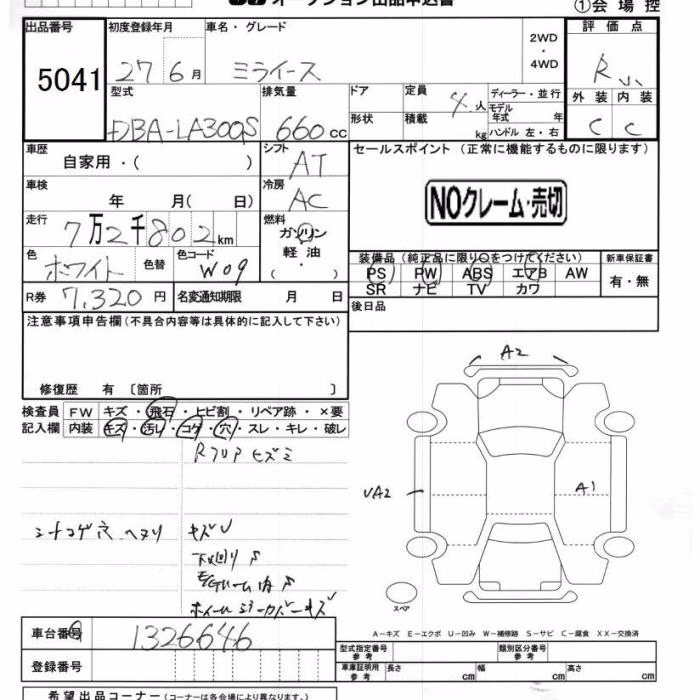 オークション出品申込書
①会場控
出品番号 初度登録年月 車名・グレード 2WD・4WD 評価点
5041 27 6月 ミライース R
型式 排気量 ドア 定員 4人 ディーラー・並行 外装 内装
DBA-LA300S 660cc 形状 積載 kg モデル年式 年 ハンドル 左・右 C C
車歴 自家用・( ) シフト AT セールスポイント (正常に機能するものに限ります)
車検 年 月( 日) 冷房 AC NOクレーム・売切
走行 7万2千802km 燃料 ガソリン
軽油・( )
色 ホワイト 色替 色コード W09
装備品 (純正品に限り○をつけてください) 新車保証書
PS PW ABS エアB AW 有・無
SR ナビ TV カワ
R券 7,320円 名変通知期限 月 日 後日品
注意事項申告欄 (不具合内容等は具体的に記入して下さい)
修復歴 有 〔箇所 〕
検査員 FW キズ・飛石・ヒビ割・リペア跡・×要
記入欄 内装 キズ・汚レ・コゲ・穴・スレ・キレ・破レ
A2
Rフロアヒズミ
UA2 A1
シートコゲ穴 ヘタリ キズU
下廻りサ
スペア
A-キズ E-エクボ U-凹み W-補修跡 S-サビ C-腐食 XX-交換済
車台番号 1326646
型式指定番号 参考 類別区分番号 参考
登録番号 車庫証明用 参考 長さ cm 幅 cm 高さ cm
希望出品コーナー (コーナーは各会場により異なります。)